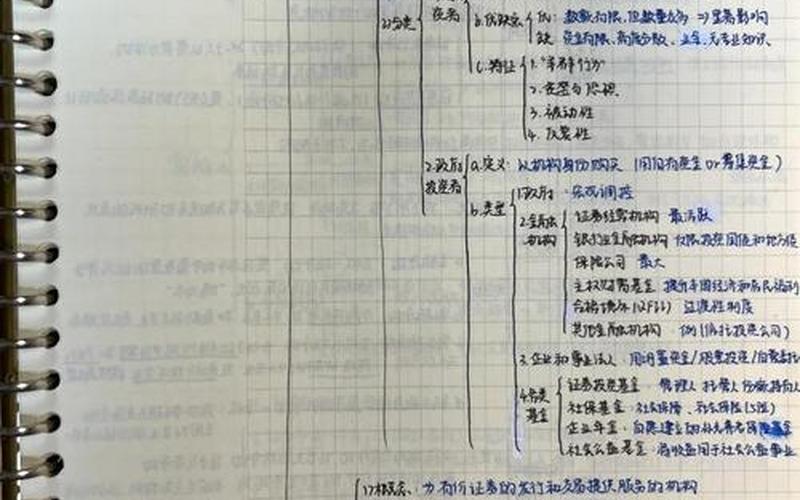 2)分类
投者
b.优缺点
优:
缺:
c.特征
1."羊群行为"
3.被动性
2.政府投资者
a.定义: 以机构身份购买(用自有资金or募集资金)
b.类型
1.政府: 宏观调控
2.金融机构
证券经营机构 最活跃
银行业金融机构 仅限投资国债和地方债
保险公司 最大
主权财富基金 提升本国经济和居民福利
合格境外(QFII) 过渡性制度
其他金融机构 例(信托投资公司)
3.企业和事业法人: 用闲置资金/股票投资/自营委托
4.各类基金
证券投资基金: 管理人 托管人 份额持有人
社保基金: 社会保障、社会保险(5险)
企业年金: 自愿建立的补充养老保险基金
社会公益基金: 将收益用于社会公益事业
1)概念: 为有价证券的发行和交易提供服务的机构